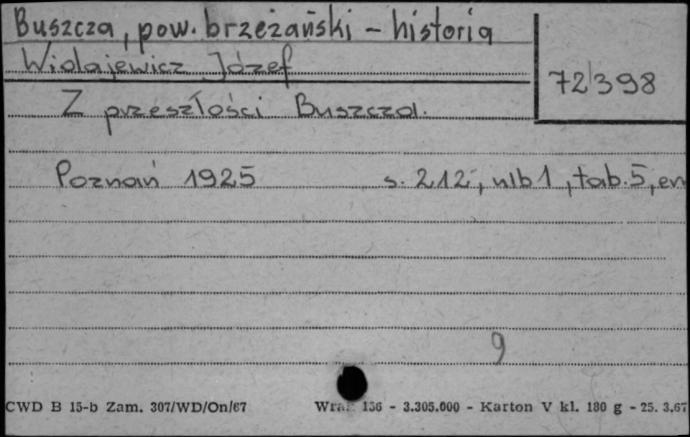 Buszcza, pow. brzeżański - historia
Widajewicz Józef
72398
Z przeszłości Buszcza.
Poznań 1925 s. 212, nlb 1, tab. 5, err
9
CWD B 15-b Zam. 307/WD/On/67 136 - 3.305.000 - Karton V kl. 180 g - 25. 3.67